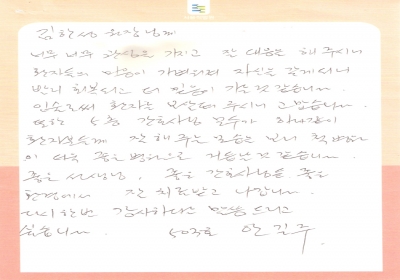 김한성 원장님께
너무 너무 관심을 가지고 잘 대응을 해 주시니
환자들의 마음이 가벼워져 자신을 갖게 되니
빨리 회복되고 더 믿음이 가는 것 같습니다.
인술로써 환자를 보살펴 주시니 고맙습니다.
또한 5층 간호사님 모두가 하나같이
환자분들께 잘 해 주는 모습을 보니 척병원
이 더욱 좋은 병원으로 거듭난 것 같습니다.
좋은 선생님, 좋은 간호사님들 좋은
환경에서 잘 치료받고 나갑니다.
다시 한번 감사하다고 말씀 드리고
싶습니다. 503호 안길주